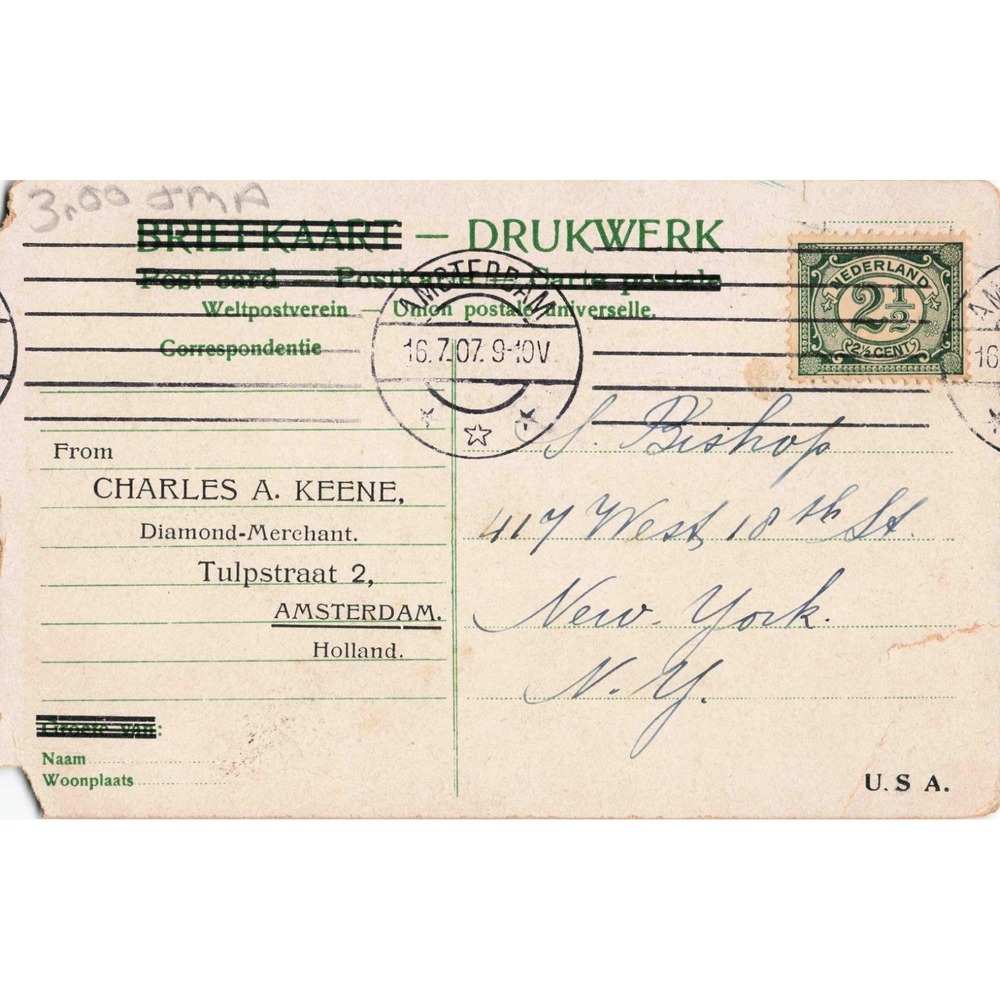 3.00 JMA
BRIEFKAART — DRUKWERK
Post card — Postkarte — Carte postale
Weltpostverein — Union postale universelle.
Correspondentie
AMSTERDAM
16.7.07. 9-10V
NEDERLAND
2 1/2
2½ CENT
From
CHARLES A. KEENE,
Diamond-Merchant.
Tulpstraat 2,
AMSTERDAM.
Holland.
S. Bishop
417 West 18th St.
New. York.
N. Y.
Groete van:
Naam
Woonplaats
U. S A.
AM
16